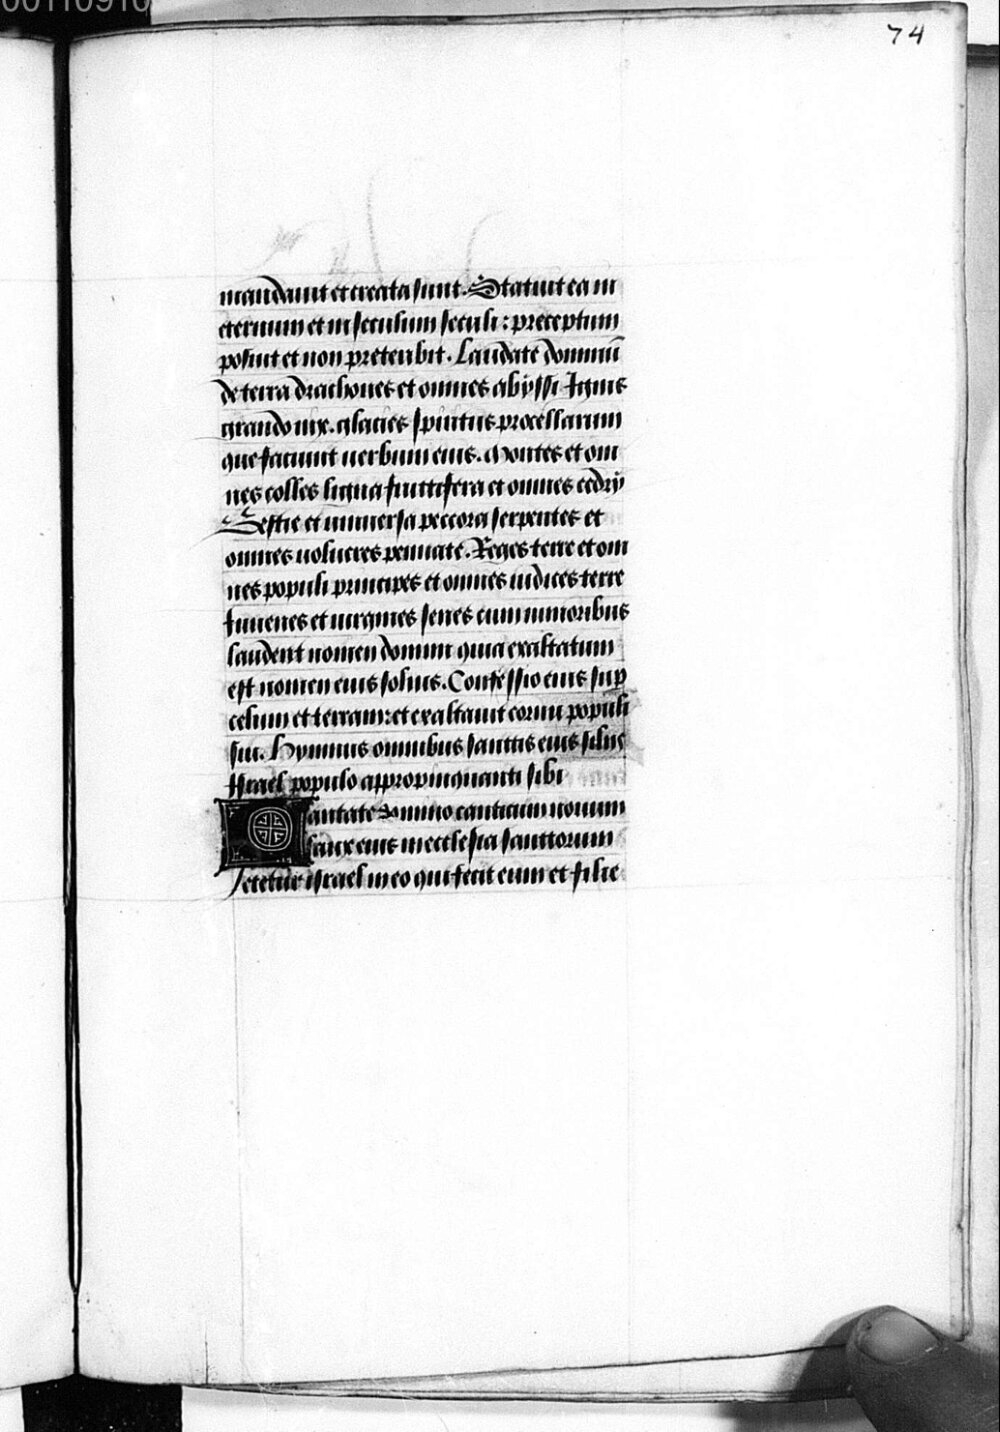 00110910
74
mandauit et creata sunt. Statuit ea in
eternum et in seculum seculi: preceptum
posuit et non preteribit. Laudate dominū
de terra drachones et omnes abyssi Ignis
grando nix. glacies spiritus procellarum
que faciunt uerbum eius. Montes et om
nes colles ligna fruttifera et omnes cedry
Bestie et uniuersa peccora serpentes et
omnes uolucres pennate. Reges terre et om
nes populi principes et omnes iudices terre
Iuuenes et uirgines senes cum iunioribus
laudent nomen domini quia exaltatum
est nomen eius solius. Confessio eius sup
celum et terram: et exaltauit cornu populi
sui. Hymnus omnibus santtis eius filiis
Israel populo appropinquanti sibi
Cantate domino canticum nouum
laux eius in ecclesia santtorum
Letetur israel in eo qui fecit eum et filie